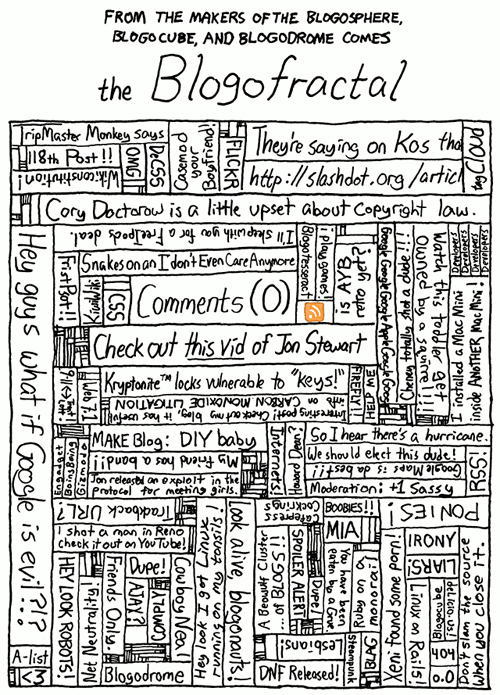 FROM THE MAKERS OF THE BLOGOSPHERE,
BLOGOCUBE, AND BLOGODROME COMES
the Blogofractal
TripMaster Monkey says
118th Post!!
Wikiconstitution!
OMG
DeCSS
Casemod
your
Boyfriend!
FLICKR
They're saying on Kos tha
http://slashdot.org/articl
tag CLOUD
Cory Doctorow is a little upset about copyright law.
Hey guys what if Google is evil?!?
I'll sleep with you for a FreeIpods deal.
Snakes on an I don't Even Care Anymore
First Post!!
Kiwiwiki
CSS
Comments (0)
Blogotesseract
i play games!
is AYB
retro yet?
Google Google Google Apple Google Google
Cheney totally shot a dude!!!
Watch this toddler get
owned by a squirrel!!!
Developers
Developers
Developers
Developers
I installed a Mac Mini
inside ANOTHER Mac Mini
Check out this vid of Jon Stewart
Web 7.1
Kryptonite™ locks vulnerable to "keys!"
Interesting post! Check out my blog, it has useful
info on CARBON MONOXIDE LITIGATION
FIREFLY!!
HELP ME
Engadget
BoingBoing
Gizmodo
MAKE Blog: DIY baby
My friend has a band!!
Jon released an exploit in the
protocol for meeting girls.
Internets!
Howard Dean?
So I hear there's a hurricane.
We should elect this dude!
Google Maps is da best!!
Moderation: +1 Sassy
RSS!
Trackback URL?
I shot a man in Reno
check it out on YouTube!
HEY LOOK ROBOTS!
Net Neutrality!
Friends Only.
Dupe!
AJAX?
COMPLY!
Cowboy Neal
Hey look I got Linux
running on my tonsils!
Look alive, blogonauts!
Cafepress
Cockrings
BOOBIES!!
MIA
A Beowulf Cluster
...of BLOGS!!
SPOILER ALERT!
Dupe!
You have been
eaten by a Grue.
Ruby on a
monorail
PONIES!
Xeni found some porn!
IRONY
LIARS!
Linux on Rails!
Blogocube
del.icio.us!
404
0.0
Don't slam the source
when you close it.
A-list
<3
Blogodrome
Lesbians!
DNF Released!
Steampunk
BLAG